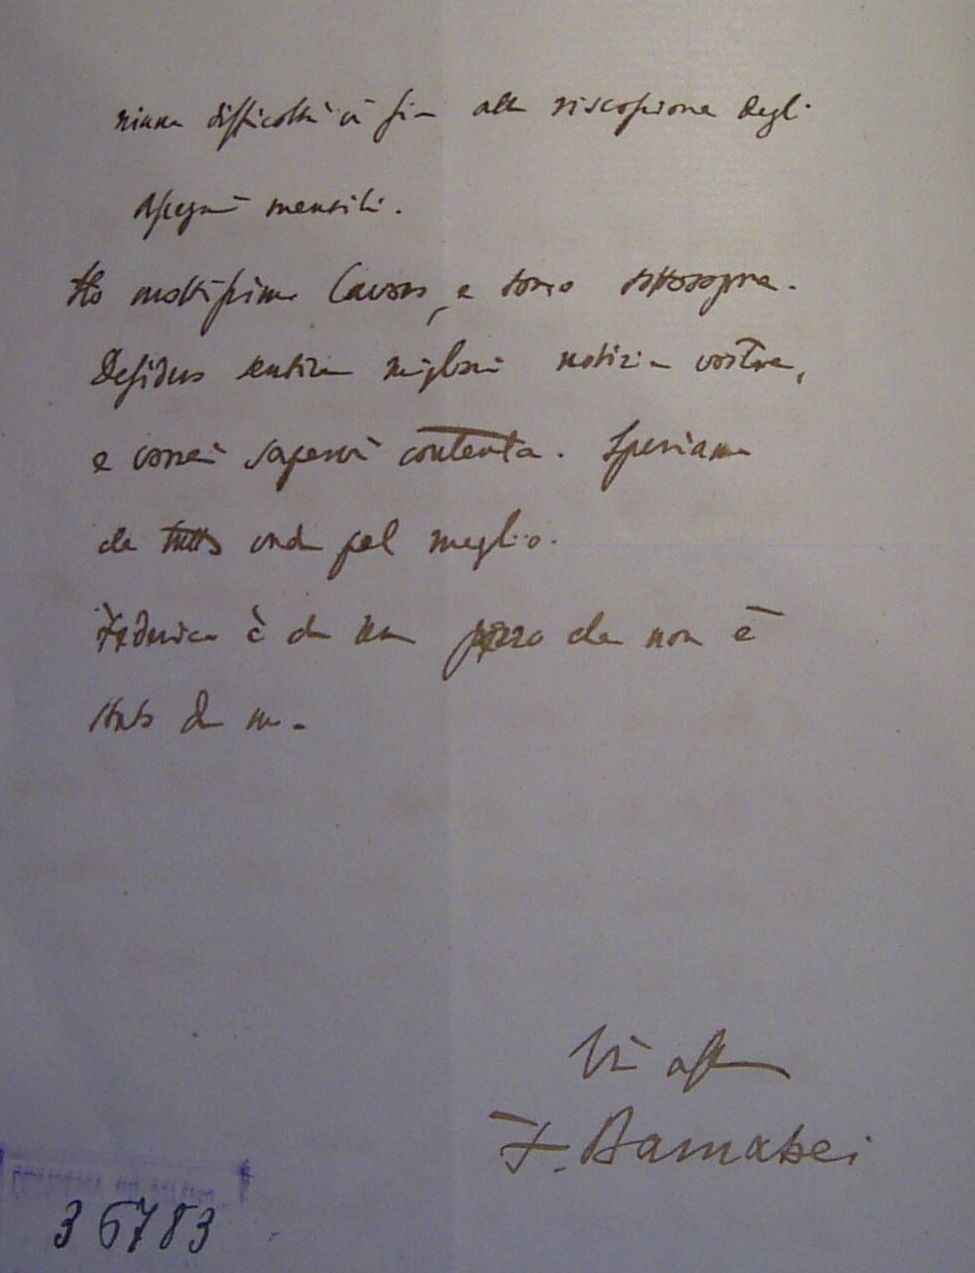 niuna difficoltà vi sia alla riscossione degli
assegni mensili.
Ho moltissimo lavoro, e sono sottosopra.
Desidero sentire migliori notizie vostre,
e vorrei sapervi contenta. Speriamo
che tutto vada pel meglio.
Federico è da un pezzo che non è
stato da me.
Vi aff
F. Barnabei
36783